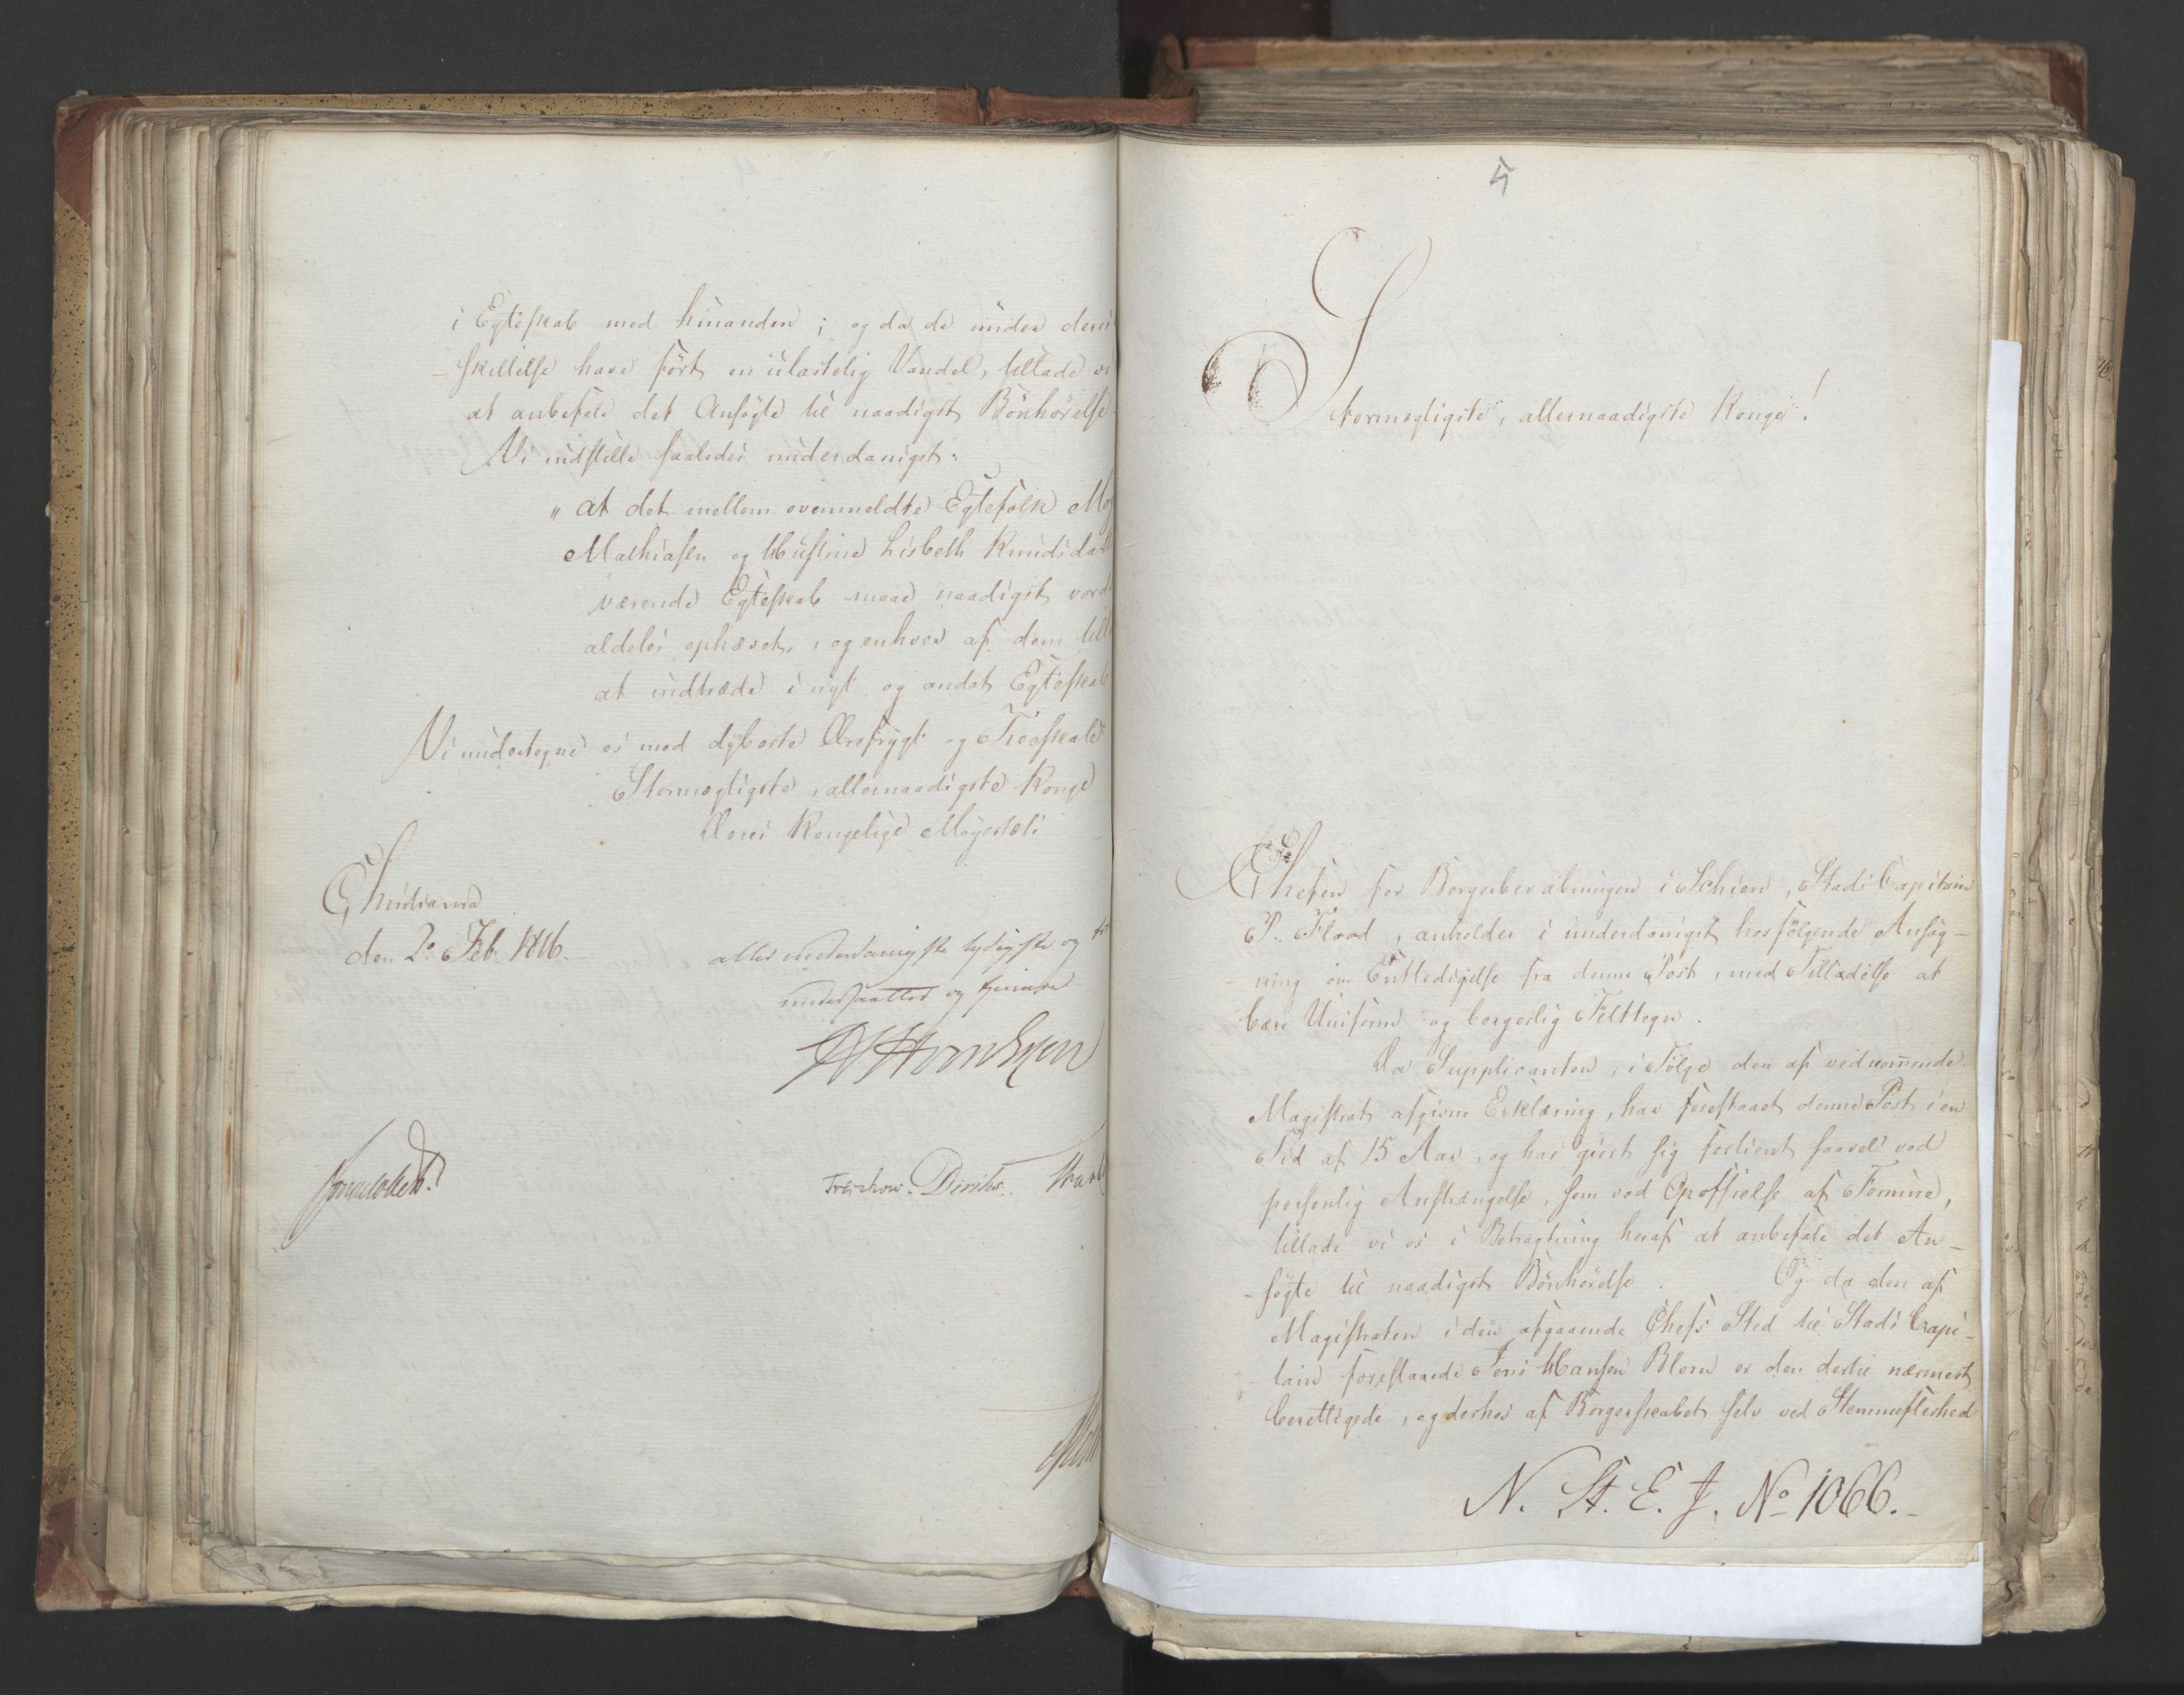 i Egteskab med hinanden; og da de under deres
-skillelse have fört en ulastelig Vandel, tillade vi
at anbefale det Ansögte til naadigst Bönhörelse.
Vi indstille saaledes underdanigst:
"at det mellem ovenmeldte Egtefolk
Mathiasen og Hustrue Lisbeth Knudsda
værende Egteskab maae naadigst vord
aldeles ophævet, og enhver af dem till
at indtræde i nyt og andet Egteskab
Vi undertegne os med dybeste Ærefrygt og Troeskab
Stormægtigste, allernaadigste Konge
Deres Kongelige Majestæts
Christiania
den 2. Feb. 1816.
allerunderdanigste lydigste og
undersaatter og tjenere
Treschow. Diriks.
5
Stormægtigste, allernaadigste Konge!
Chefen for Borgerbevæbningen i Schien, Stads Capitain
P. Flood, anholder i underdanigst hosfölgende Ansög-
-ning om Entledigelse fra denne Post, med Tilladelse at
bære Uniform og borgerlig Felttegn.
Da Supplicanten, i Fölge den af vedkommende
Magistrat afgivne Erklæring, har forestaaet denne Post i en
Tid af 15 Aar, og har giort sig fortient saavel ved
personlig Anstrængelse, som ved Opoffrelse af Formue,
tillade vi os i Betragtning heraf at anbefale det An-
-sögte til naadigst Bönhörelse. Og da den af
Magistraten i den afgaaende Chefs Sted til Stads Capi-
-tain foreslaaede Jens Hansen Blom er den dertil nærmest
berettigede, og derhos af Borgerskabet selv ved Stemmefleerhed
N. St. E. J. No 1066.-